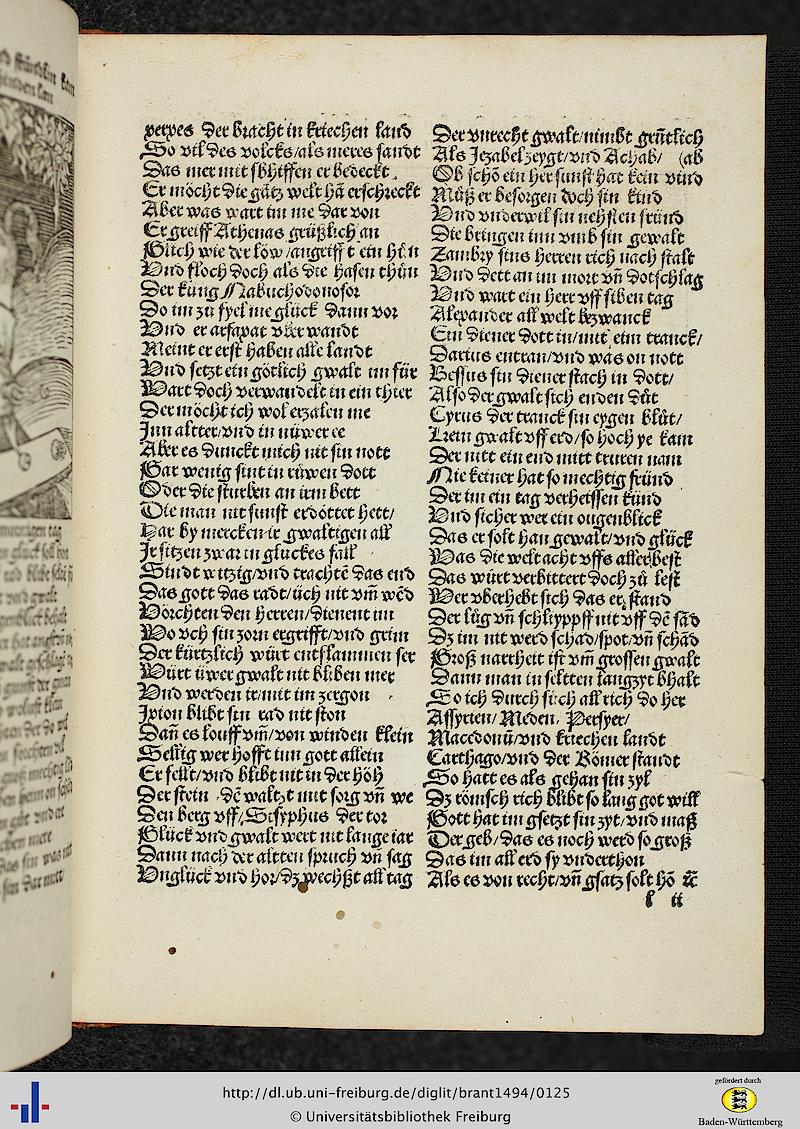 xerxes der bracht in kriechen land
So vil des volcks/als meres sandt
Das mer mit schiffen er bedeckt
Er möcht die gātz welt hā erschreckt
Aber was wart im me dar von
Er greiff Athenas grüßlich an
Glich wie der löw/angrifft ein hůn
Vnd floch doch als die hasen thůn
Der küng Nabuchodonosor
Do im zů fyel me glück dann vor
Vnd er arfaxat vberwandt
Meint er erst haben alle landt
Vnd setzt ein götlich gwalt im für
Wart doch verwandelt in ein thier
Der möcht ich wol erzalen me
Inn altter/vnd in nüwer ee
Aber es dunckt mich nit sin nott
Gar wenig sint in rüwen dott
Oder die sturben an irm bett
Die man nit sunst erdöttet hett/
Har by mercken ir gwaltigen all
Ir sitzen zwar in gluckes fall
Sindt witzig/vnd trachtē das end
Das gott das radt/üch nit vm̄ wēd
Vörchten den herren/dienent im
Wo vch sin zorn ergrifft/vnd grim
Der kürtzlich würt entflammen ser
Würt üwer gwalt nit bliben mer
Vnd werden ir/mit im zergon
Ixion blibt sin rad nit ston
Dan̄ es louff vm̄/von winden klein
Sellig wer hofft inn gott allein
Er fellt/vnd blibt nit in der höh
Der stein dē waltzt mit sorg vn̄ we
Den berg vff/Sisyphus der tor
Glück vnd gwalt wert nit lange iar
Dann nach der altten spruch vn̄ sag
Vnglück vnd hor/dz wechßt all tag
Der vnrecht gwalt/nimbt grūtlich
Als Jezabel zeygt/vnd Achab/ (ab
Ob schō ein her sunst hat kein vind
Můß er besorgen doch sin kind
Vnd vnderwil sin nehsten fründ
Die bringen inn vmb sin gewalt
Zambry sins herren rich nach stalt
Vnd dett an im mort vn̄ dotschlag
Vnd wart ein herr vff siben tag
Alexander all welt bezwanck
Ein diener dott in/mit eim tranck/
Darius entran/vnd was on nott
Bessus sin diener stach in dott/
Also der gwalt sich enden důt
Cyrus der tranck sin eygen blůt/
Kein gwalt vff erd/so hoch ye kam
Der nitt ein end mitt truren nam
Nie keiner hat so mechtig fründ
Der im ein tag verheissen künd
Vnd sicher wer ein ougenblick
Das er solt han gewalt/vnd glück
Was die welt acht vffs aller best
Das würt verbittert doch zů lest
Wer vberhebt sich das er stand
Der lůg vn̄ schlypff nit vff dē sād
Dz im nit werd schad/spot/vn̄ schād
Groß narrheit ist vm̄ grossen gwalt
Dann man in seltten langzyt bhalt
So ich durch such all rich do her
Assyrien/Meden, Persyer/
Macedonū/vnd kriechen landt
Carthago/vnd der Römer standt
So hatt es als gehan sin zyl
Dz römsch rich blibt so lang got will
Gott hat im gsetzt sin zyt/vnd maß
Der geb/das es noch werd so groß
Das im all erd sy vnderthon
Als es von recht/vn̄ gsatz solt hō ꝛc̄
l ii
http://dl.ub.uni-freiburg.de/diglit/brant1494/0125
© Universitätsbibliothek Freiburg
gefördert durch
Baden-Württemberg